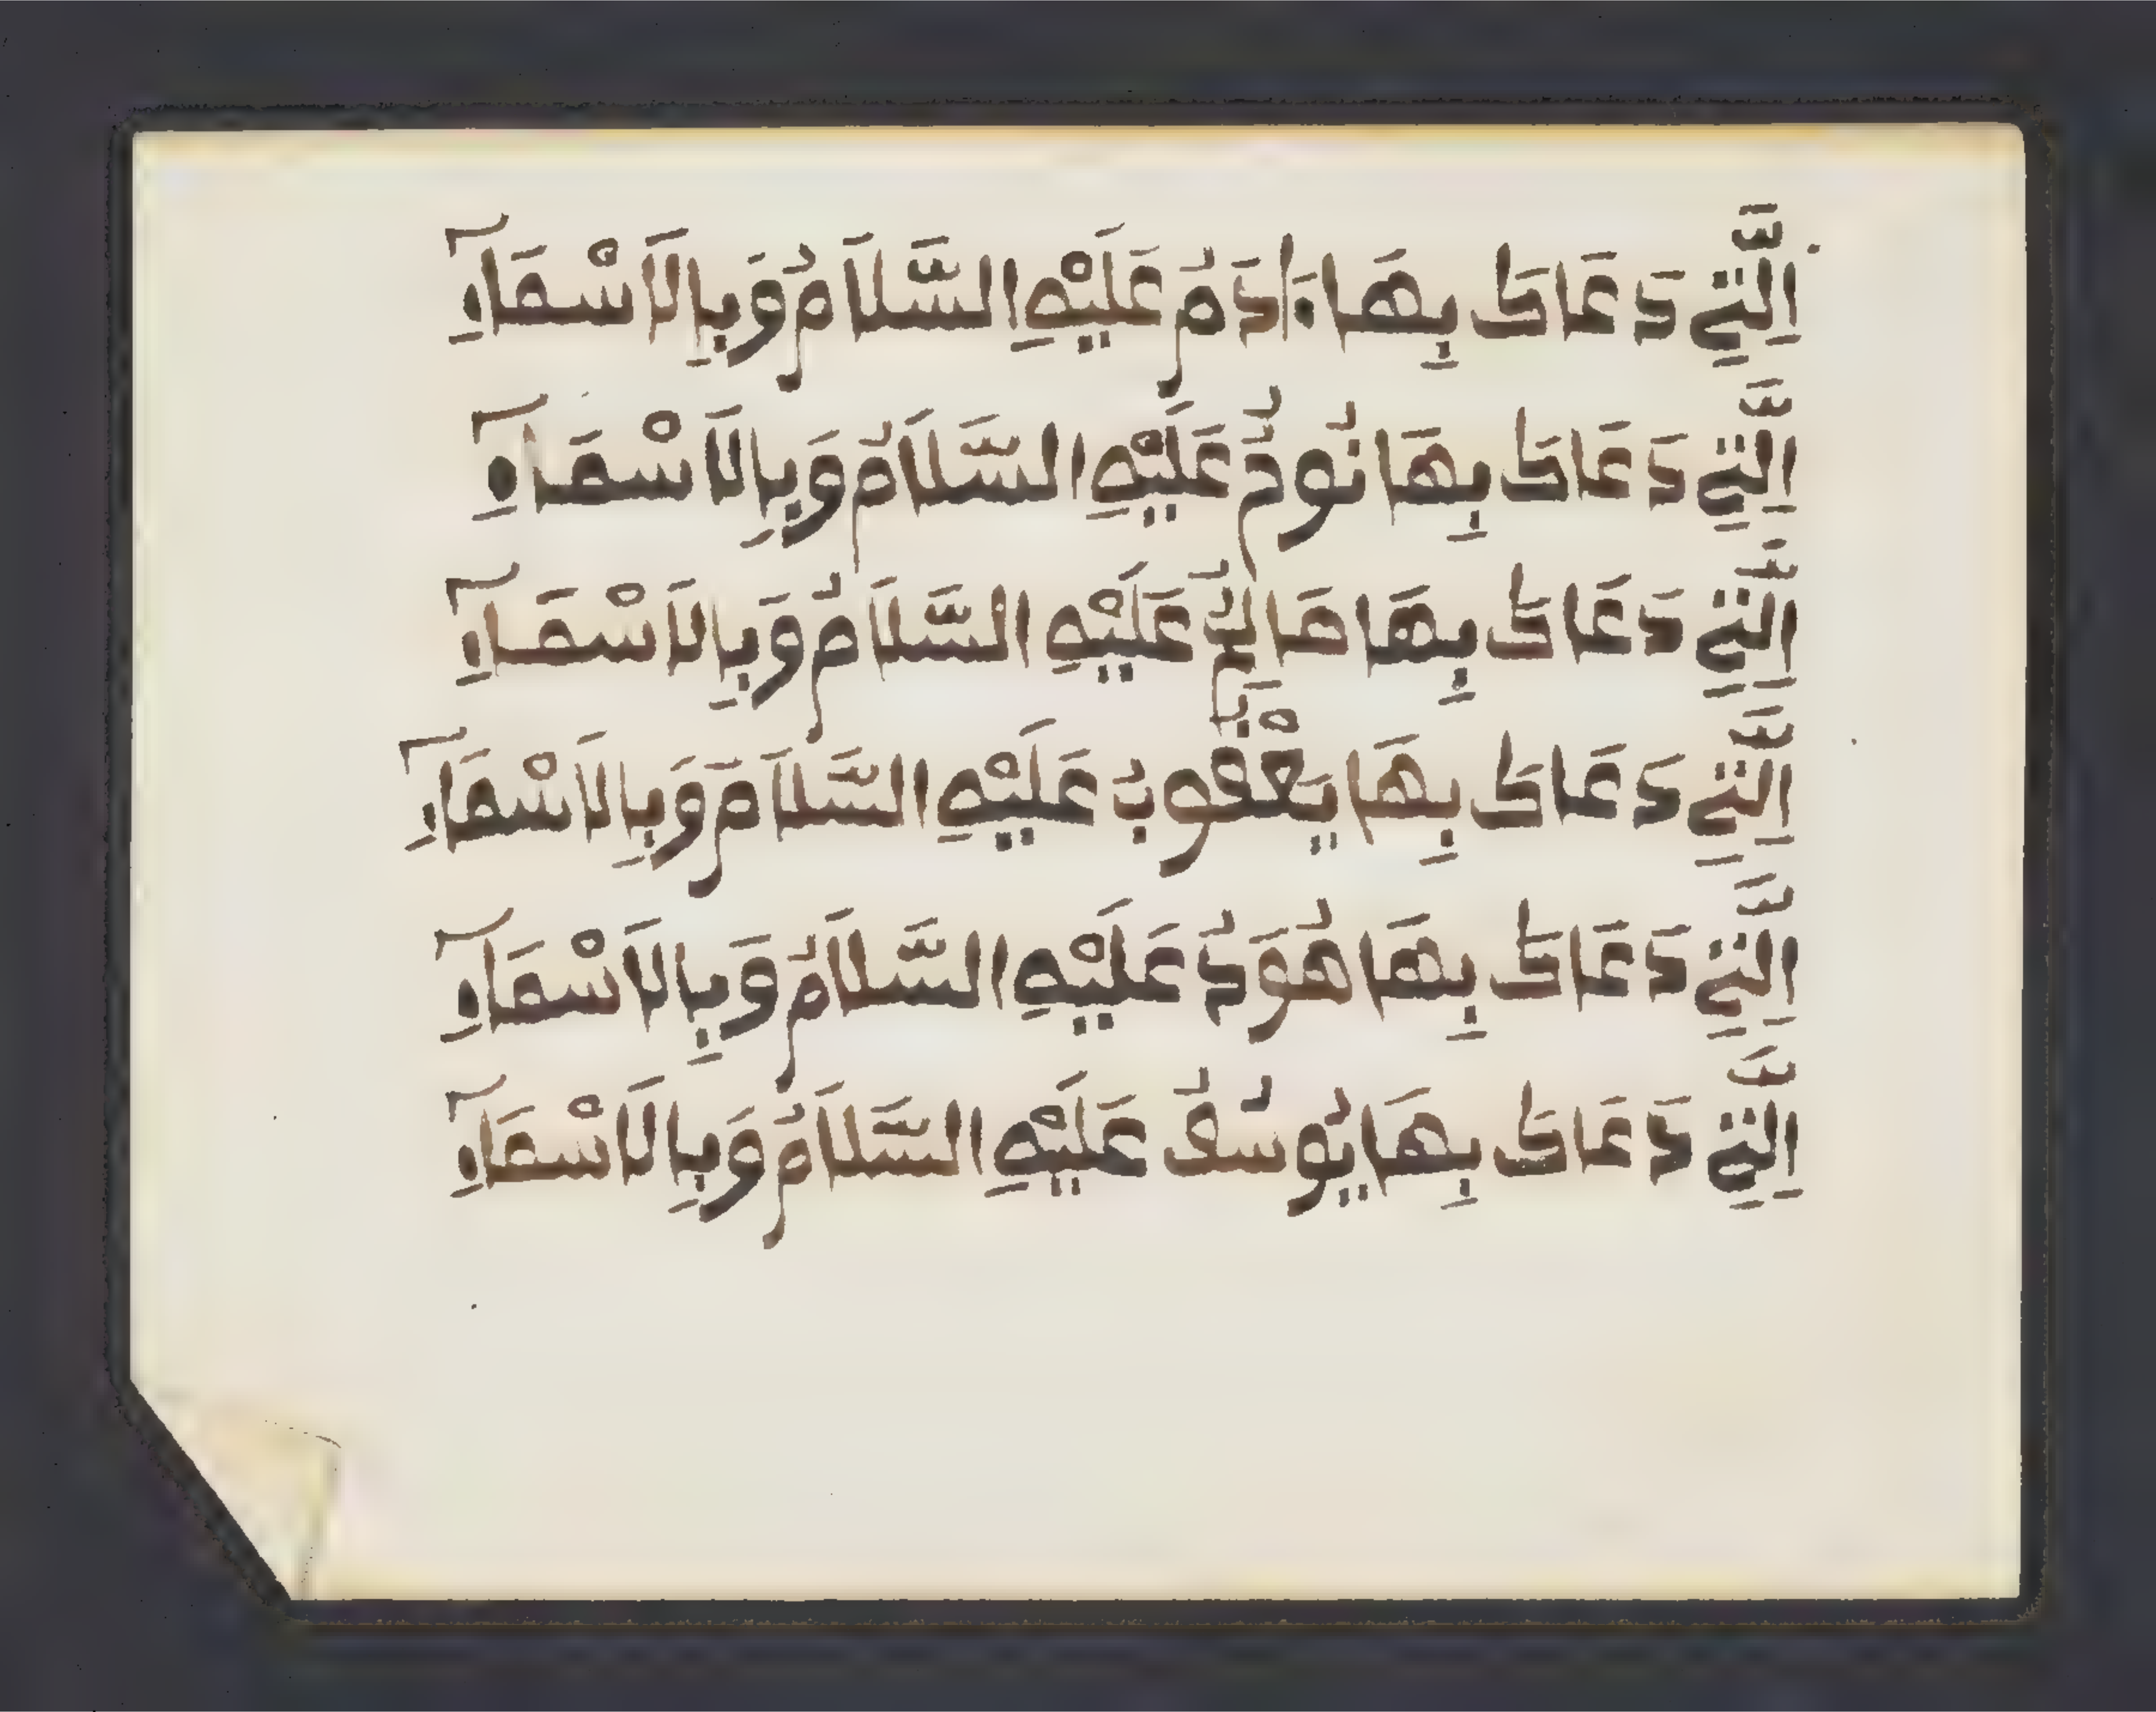 اَلَّتِي دَعَاكَ بِهَا ءَادَمُ عَلَيْهِ السَّلَامُ وَبِالَاسْمَآءِ
اَلَّتِي دَعَاكَ بِهَا نُوحٌ عَلَيْهِ السَّلَامُ وَبِالَاسْمَآءِ
اَلَّتِي دَعَاكَ بِهَا صَالِحٌ عَلَيْهِ السَّلَامُ وَبِالَاسْمَآءِ
اَلَّتِي دَعَاكَ بِهَا يَعْقُوبُ عَلَيْهِ السَّلَامُ وَبِالَاسْمَآءِ
اَلَّتِي دَعَاكَ بِهَا هُودٌ عَلَيْهِ السَّلَامُ وَبِالَاسْمَآءِ
اَلَّتِي دَعَاكَ بِهَا يُوسُفُ عَلَيْهِ السَّلَامُ وَبِالَاسْمَآءِ